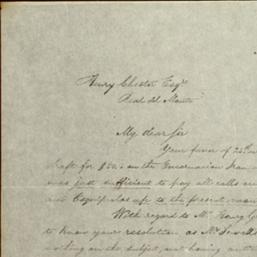 Henry Chester Esqr.
Real del Monte
My dear Sir
Your favor of 25th
draft for $50 on the
was just sufficient to pay all calls
up to the present
With regard to Mr. Henry
to know your resolution as Mr.
writing on the subject, not having